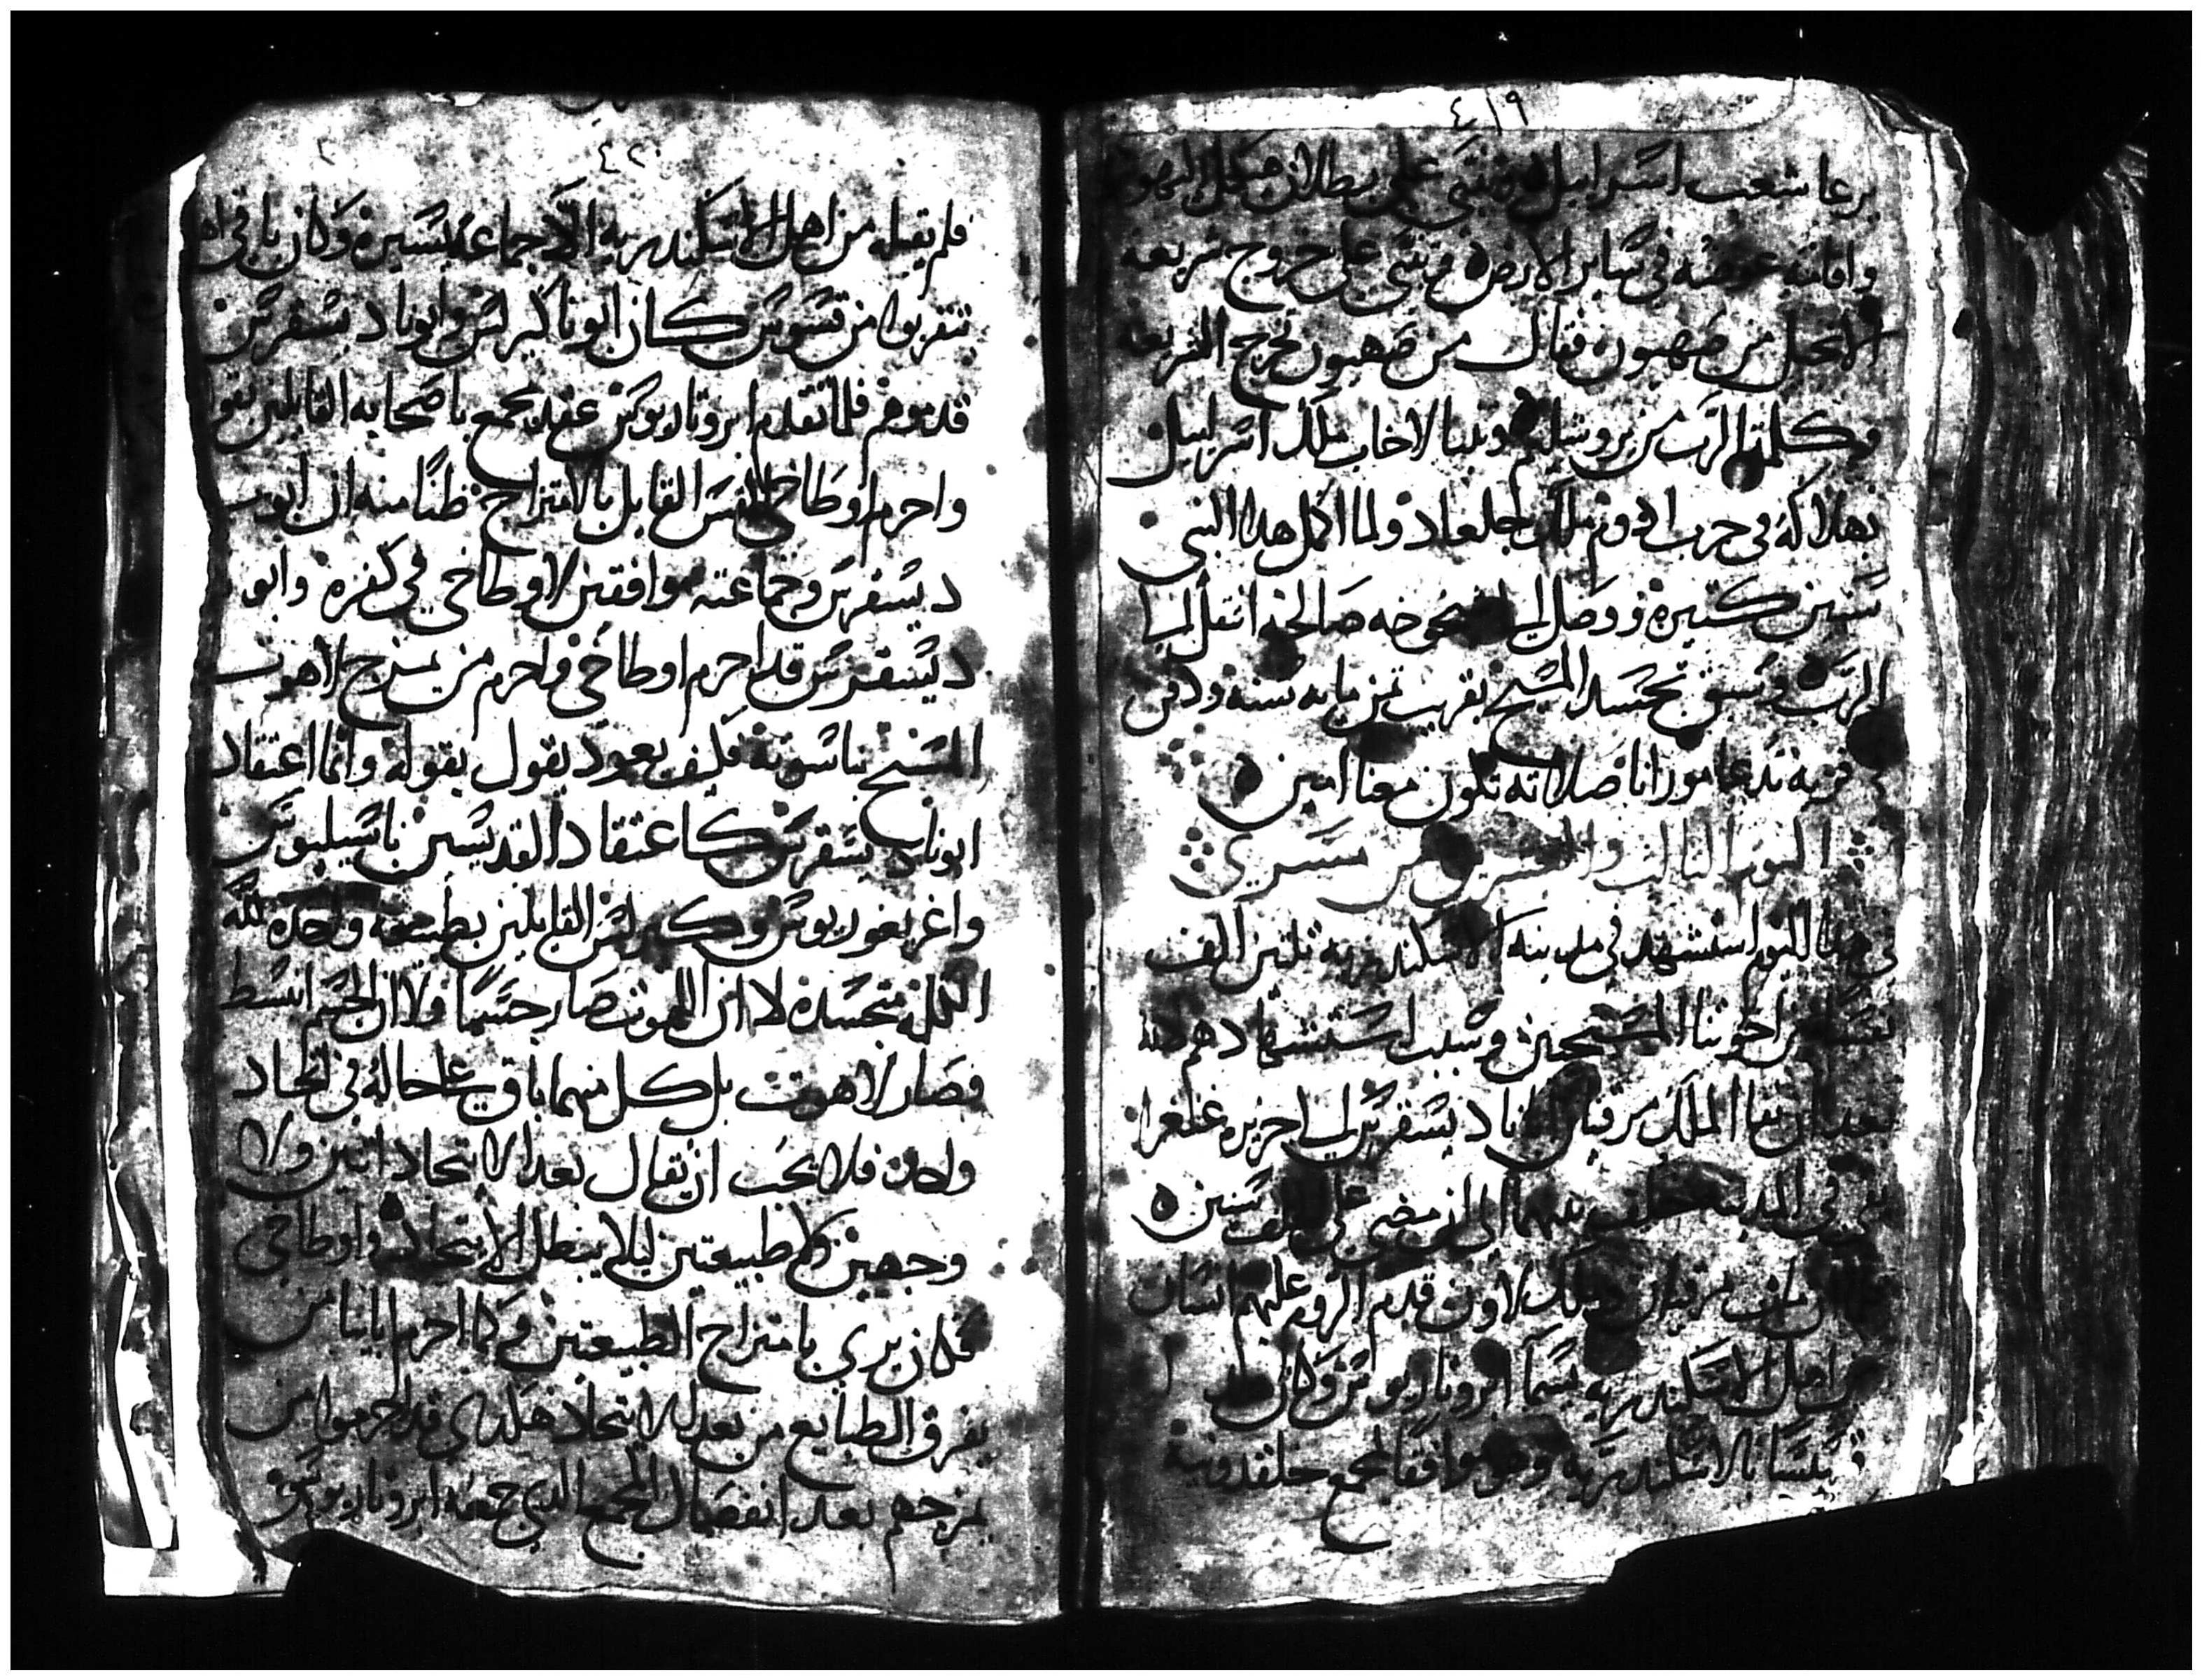 ٤١٩
يرعا شعب اسراييل وتنبى على بطلان هيكل اليهود
واقامة عوضه في ساير الارض وتنبى على خروج شريعة
الانجيل من صهيون فقال من صهيون تخرج الشريعه
وكلمة الرب من يروشليم وتنبا لاخاب ملك اسراييل
بهلاكه في حرب راموت جلعاد ولما اكمل هدا النبي
سنين كتيره ووصل الى شيخوخه صالحه انتقل الى
الرب وسبق تجسد المسيح بقريب تمن مايه سنه ودفن
في قريه تدعا موراتا صلاته تكون معنا امين
اليوم التالت والعشرين من مسري
في هدا اليوم استشهد في مدينة الاسكندريه تلتين الف
نفسا من اخوتنا المسيحيين وسبب استشهادهم انه
بعد ان نفا الملك مرقيان الانبا ديسقرس الى جزيره غلغرا
بقي في المدينه الى ان مضى على سنين
وقدم الروم عليهم انسان
من اهل الاسكندريه يسما ابروتاريوس وكان
قسيسا بالاسكندريه وهو موافقا لمجمع خلقدونية
٤٢٠
فلم يقبله من اهل الاسكندريه الا جماعه يسيره وكان باقي اهـ
يتقربوا من قسوس كان ابونا كيرلس وابونا ديسقرس
قدموهم فلما تقدم ابروتاريوس عقد مجمع باصحابه القايلين
واحرم اوطاخي القس القايل بالامتزاج ظنا منه ان ابونا
ديسقرس وجماعته موافقين لاوطاخي في كفره وابو
ديسقرس قد احرم اوطاخي واحرم من يمزج لاهوت
المسيح بناسوته فكيف يعود يقول بقوله وانما اعتقاد
ابونا ديسقرس كاعتقاد القديسين باسيليوس
واغريغوريوس وكيرلس القايلين بطبيعه واحده لله
الكلمه متجسده لا ان اللاهوت صار جسما ولا ان الجسم انبسط
فصار لاهوت بل كل منهما باقي على حاله في اتحاد
واحد فلا يجب ان يقال بعد الاتحاد اتنين ولا
وجهين ولا طبيعتين ليلا يبطل الاتحاد واوطاخي
كان يري بامتزاج الطبيعتين وكما احرم ابايتنا من
يفرق الطبايع من بعد الاتحاد هكدى قد احرموا من
يمزجهم بعد انفصال المجمع الدي جمعه ابروتاريوس